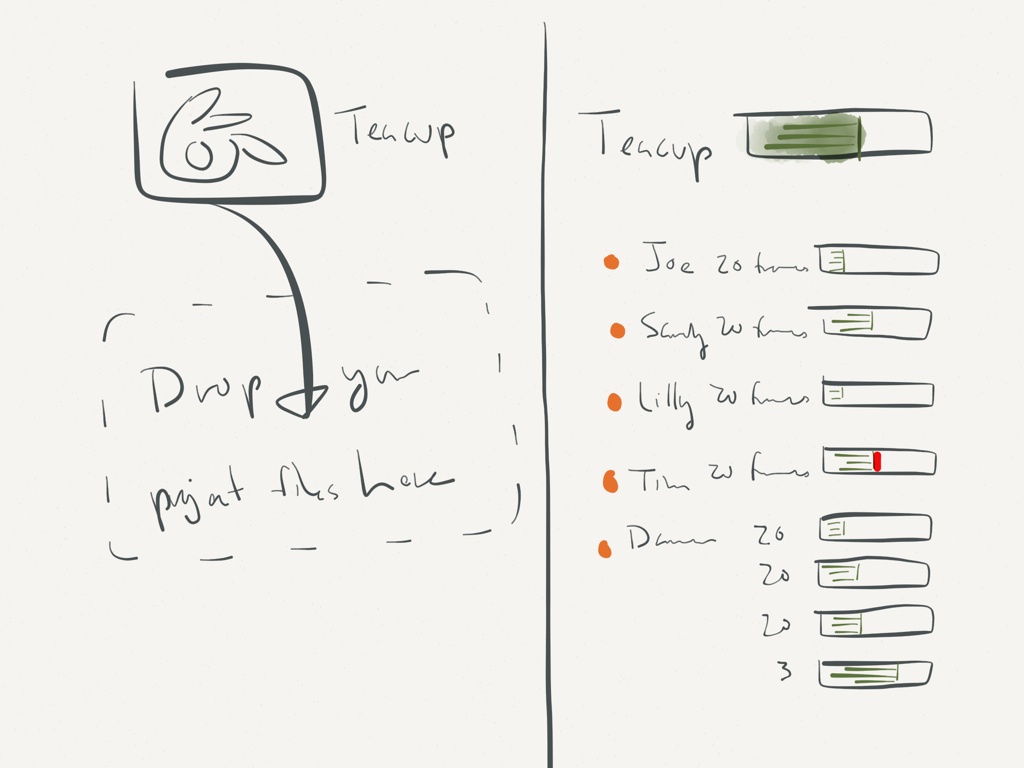 Teacup
Drop your
project files here
Teacup
Joe 20 frames
Sandy 20 frames
Lilly 20 frames
Tim 20 frames
20
20
20
3